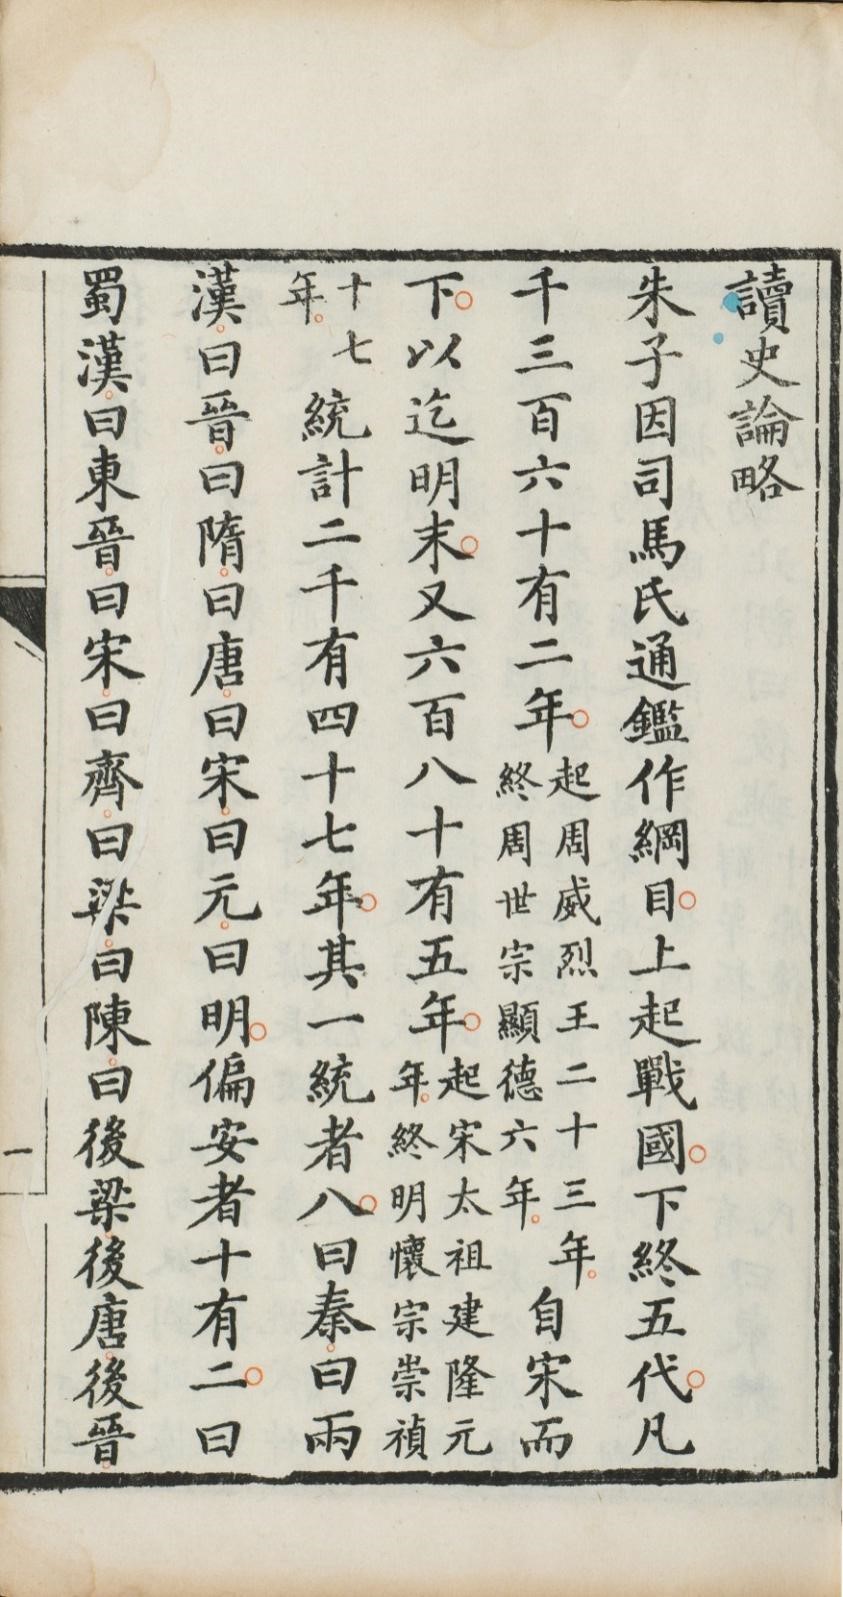 讀史論略
朱子因司馬氏通鑑作綱目上起戰國下終五代凡
千三百六十有二年起周威烈王二十三年終周世宗顯德六年自宋而
下以迄明末又六百八十有五年起宋太祖建隆元年終明懷宗崇禎
十七年統計二千有四十七年其一統者八曰秦曰兩
漢曰晉曰隋曰唐曰宋曰元曰明偏安者十有二曰
蜀漢曰東晉曰宋曰齊曰梁曰陳曰後梁後唐後晉
一